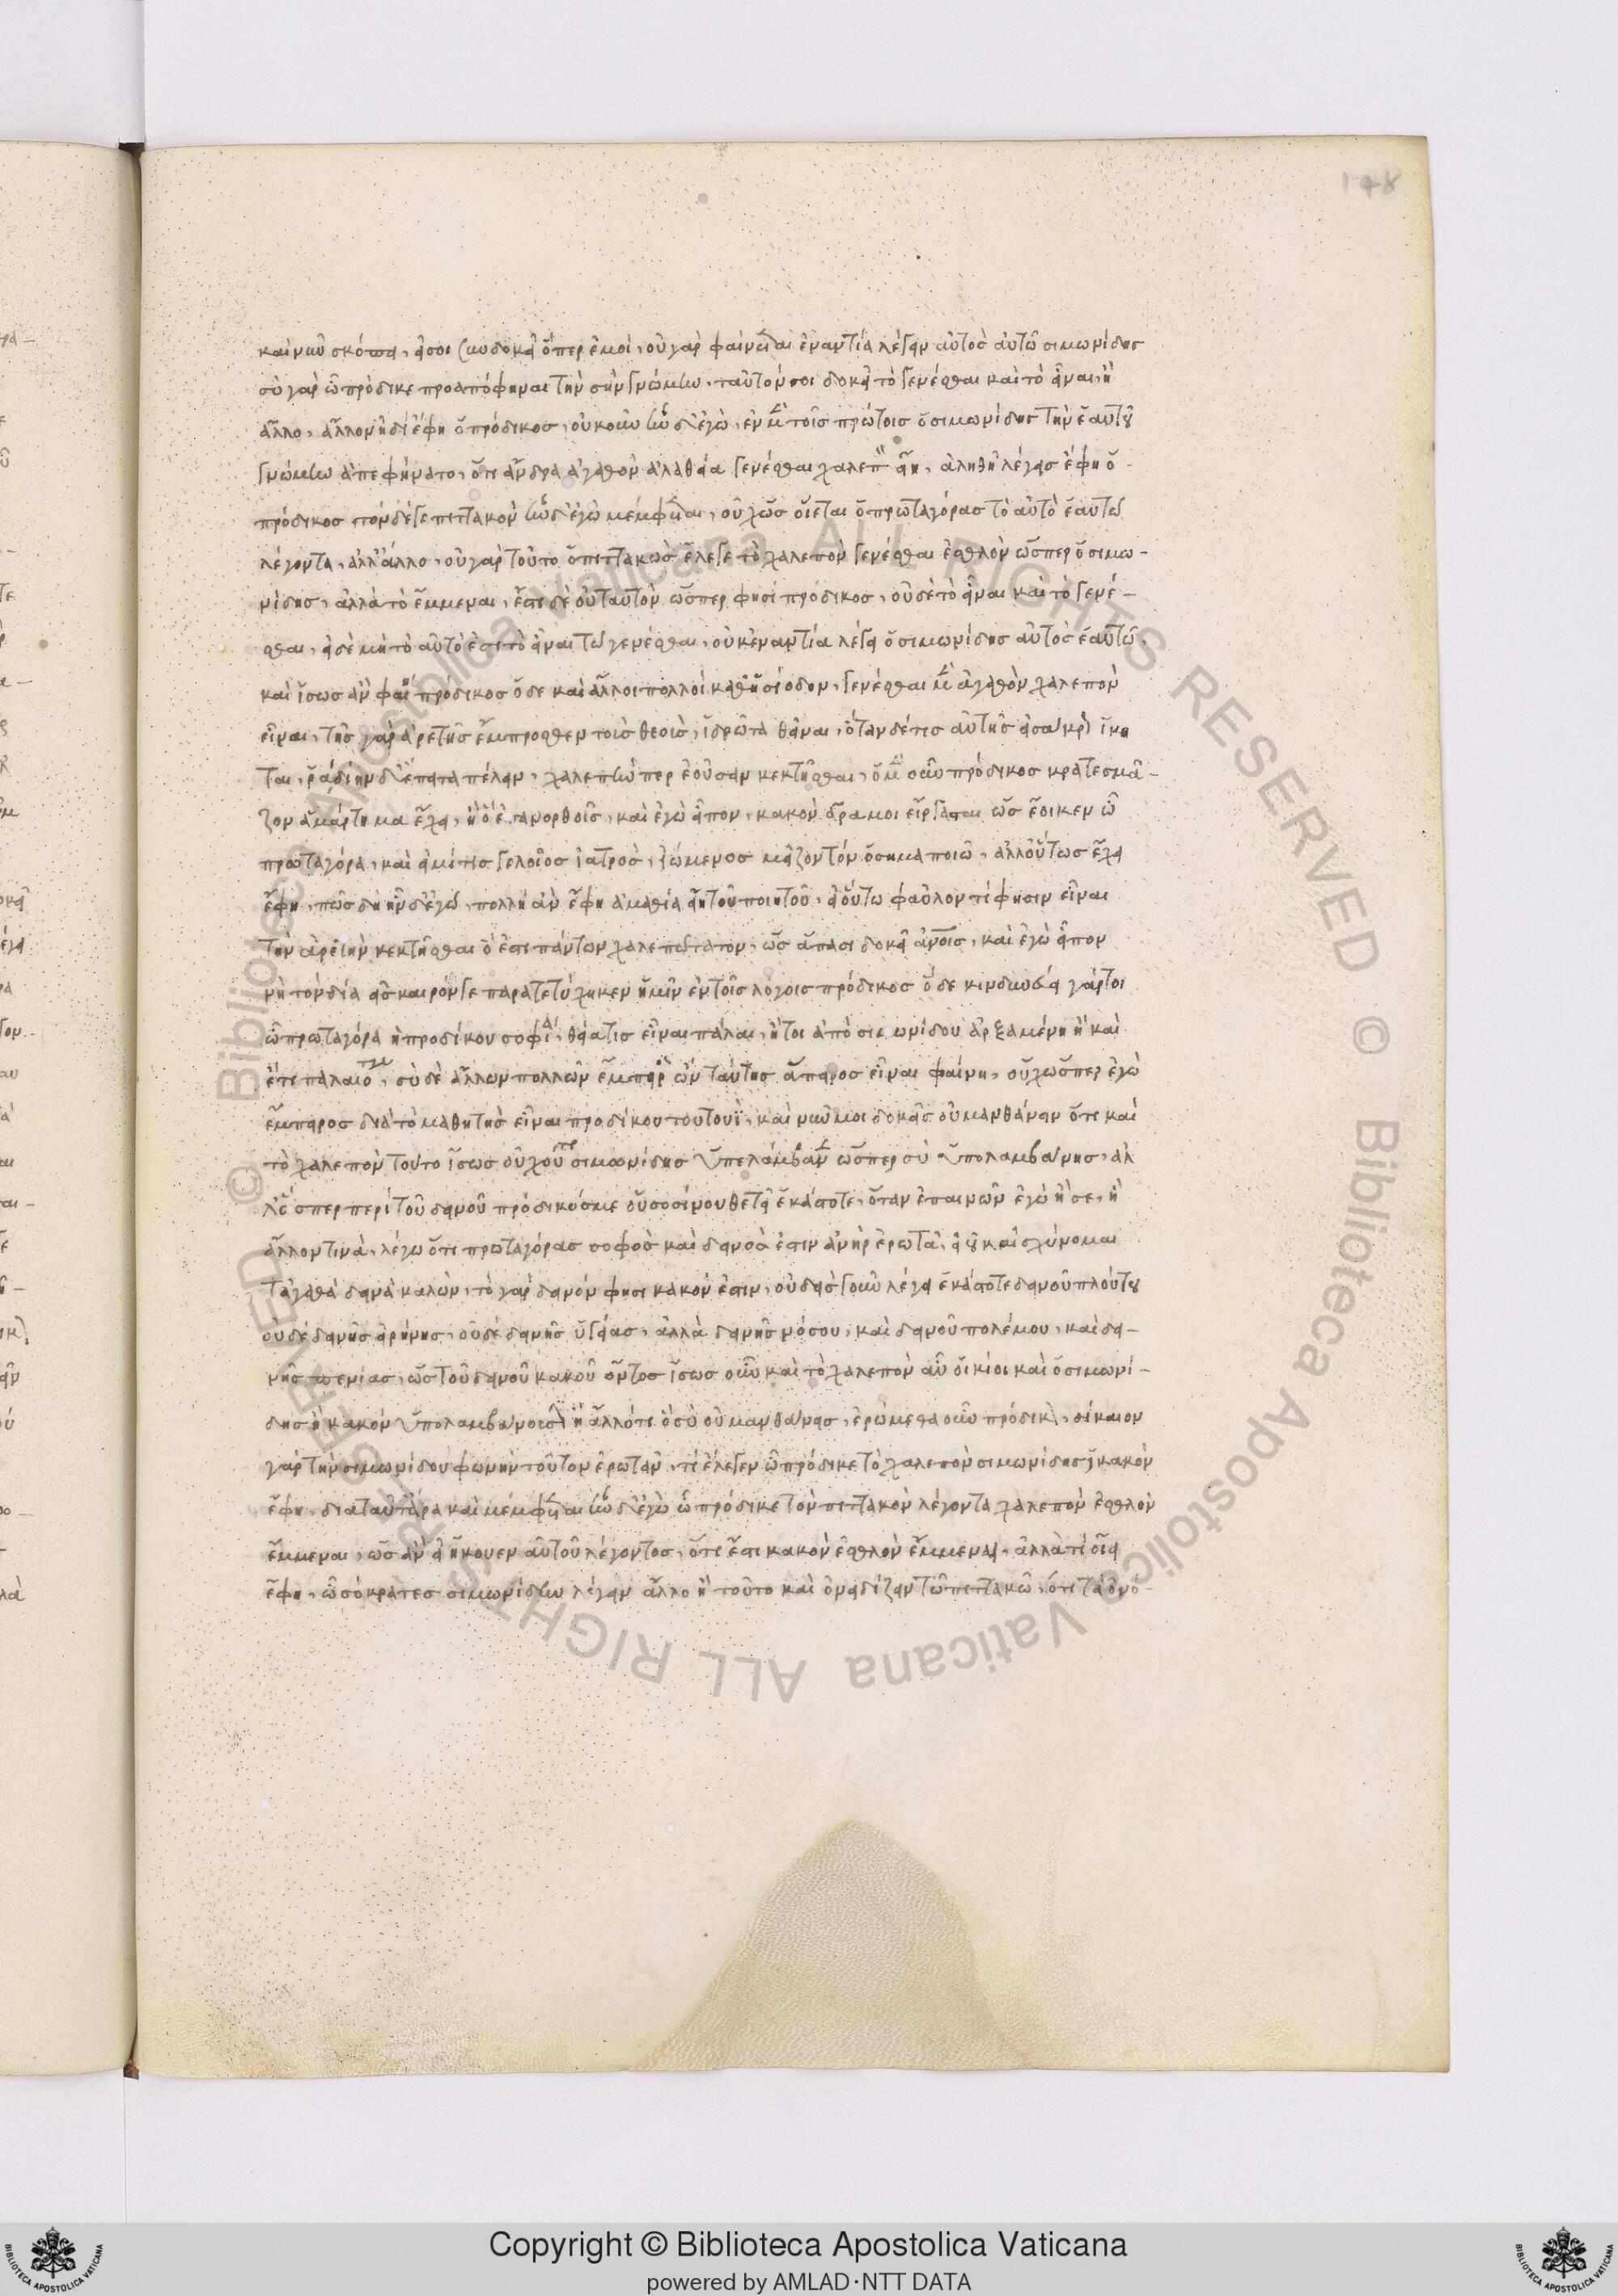 148
καὶ νῦν σκόπει, εἴ σοι συνδοκεῖ ὅπερ ἐμοί, οὐ γὰρ φαίνεται ἐναντία λέγειν αὐτὸς αὑτῷ σιμωνίδης
σὺ γὰρ ὦ πρόδικε προαπόφηναι τὴν σὴν γνώμην, ταὐτόν σοι δοκεῖ τὸ γενέσθαι καὶ τὸ εἶναι, ἢ
ἄλλο, ἄλλο νὴ δί ἔφη ὁ πρόδικος, οὐκοῦν ἦν δ' ἐγὼ, ἐν μὲν τοῖς πρώτοις ὁ σιμωνίδης τὴν ἑαυτοῦ
γνώμην ἀπεφήνατο, ὅτι ἄνδρα ἀγαθὸν ἀλαθεία γενέσθαι χαλεπὸν εἴη, ἀληθῆ λέγεις ἔφη ὁ
πρόδικος τὸν δέ γε πιττακὸν ἦν δ' ἐγὼ μέμφεται, οὐχ ὡς οἴεται ὁ πρωταγόρας τὸ αὐτὸ ἑαυτῷ
λέγοντα, ἀλλ' ἄλλο, οὐ γὰρ τοῦτο ὁ πιττακὸς ἔλεγε τὸ χαλεπὸν γενέσθαι ἐσθλὸν ὥσπερ ὁ σιμω-
νίδης, ἀλλὰ τὸ ἔμμεναι, ἔστι δὲ οὐ ταυτὸν ὥσπερ φησὶ πρόδικος, οὐδὲ τὸ εἶναι καὶ τὸ γενέ-
σθαι, εἰ δὲ μὴ τὸ αὐτό ἐστι τὸ εἶναι τῷ γενέσθαι, οὐκ ἐναντία λέγει ὁ σιμωνίδης αὐτὸς ἑαυτῷ,
καὶ ἴσως ἂν φαίη πρόδικος ὅδε καὶ ἄλλοι πολλοὶ καθ' ἡσίοδον, γενέσθαι μὲν ἀγαθὸν χαλεπὸν
εἶναι, τῆς γὰρ ἀρετῆς ἔμπροσθεν τοὶς θεοὶς, ἱδρῶτα θεῖναι, ὅταν δέ τις αὐτῆς εἰς ἄκρον ἵκη
ται, ῥαδίην δ' ἔπειτα πέλειν, χαλεπήν περ ἐοῦσαν κεκτῆσθαι, ὁ μὲν οὖν πρόδικος
ζον ἁμάρτημα ἔχει, ἢ ὃ ἐπανορθοῖς, καὶ ἐγὼ εἶπον, κακὸν ἄρα μοι εἴργασται ὡς ἔοικεν ὦ
πρωταγόρα, καὶ εἰμί τις γελοῖος ἰατρὸς, ἰώμενος μεῖζον τὸ νόσημα ποιῶ, ἀλλ' οὕτως ἔχει
ἔφη, πῶς δὴ ἦν δ' ἐγώ, πολλὴ ἂν ἔφη ἀμαθία εἴη τοῦ ποιητοῦ, εἰ οὕτω φαῦλον τί φησιν εἶναι
τὴν ἀρετὴν κεκτῆσθαι ὅ ἐστι πάντων χαλεπώτατον, ὡς ἅπασι δοκεῖ ἀνοις, καὶ ἐγὼ εἶπον
νὴ τὸν δία εἰς καιρόν γε παρατετύχηκεν ἡμῖν ἐν τοῖς λόγοις πρόδικος ὅδε κινδυνεύει γάρ τοι
ὦ πρωταγόρα ἡ προδίκου σοφία, θεία τις εἶναι πάλαι, ἤτοι ἀπὸ σιμωνίδου ἀρξαμένη ἢ καὶ
ἔτι παλαιοτέρα, σὺ δὲ ἄλλων πολλῶν ἔμπειρος ὢν ταύτης ἄπειρος εἶναι φαίνη, οὐχ ὥσπερ ἐγὼ
ἔμπειρος διὰ τὸ μαθητὴς εἶναι προδίκου τουτουῒ, καὶ νῦν μοι δοκεῖς οὐ μανθάνειν ὅτι καὶ
τὸ χαλεπὸν τοῦτο ἴσως οὐχ οὕτως σιμωνίδης ὑπελάμβανεν ὥσπερ σὺ ὑπολαμβάνεις, ἀλ
λ' ὥσπερ περὶ τοῦ δεινοῦ πρόδικός με οὑτοσὶ νουθετεῖ ἑκάστοτε, ὅταν ἐπαινῶν ἐγὼ ἢ σε, ἢ
ἄλλον τινὰ, λέγω ὅτι πρωταγόρας σοφὸς καὶ δεινός ἐστιν ἀνὴρ ἐρωτᾶ, εἰ οὐκ αἰσχύνομαι
τἀγαθὰ δεινὰ καλῶν, τὸ γὰρ δεινόν φησι κακόν ἐστιν, οὐδεὶς γοῦν λέγει ἑκάστοτε δεινοῦ πλούτου
οὐδὲ δεινῆς εἰρήνης, οὐδὲ δεινῆς ὑγείας, ἀλλὰ δεινῆς νόσου, καὶ δεινοῦ πολέμου, καὶ δει-
νῆς πενίας, ὡς τοῦ δεινοῦ κακοῦ ὄντος ἴσως οὖν καὶ τὸ χαλεπὸν αὖ οἱ κίοι καὶ ὁ σιμωνί-
δης ἢ κακὸν ὑπολαμβάνουσιν ἢ ἄλλό τι ὃ σὺ οὐ μανθάνεις, ἐρώμεθα οὖν πρόδικον, δίκαιον
γὰρ τὴν σιμωνίδου φωνὴν τοῦτον ἐρωτᾶν, τί ἔλεγεν ὦ πρόδικε τὸ χαλεπὸν σιμωνίδης; κακὸν
ἔφη, διὰ ταῦτ' ἄρα καὶ μέμφεται ἦν δ' ἐγὼ ὦ πρόδικε τὸν πιττακὸν λέγοντα χαλεπὸν ἐσθλὸν
ἔμμεναι, ὡς ἂν εἰ ἤκουεν αὐτοῦ λέγοντος, ὅτι ἔστι κακὸν ἐσθλὸν ἔμμεναι, ἀλλὰ τί οἴει
ἔφη, ὦ σόκρατες σιμωνίδην λέγειν ἄλλο ἢ τοῦτο καὶ ὀνειδίζειν τῷ πιττακῷ, ὅτι τὰ ὀνό-
Copyright © Biblioteca Apostolica Vaticana
powered by AMLAD·NTT DATA